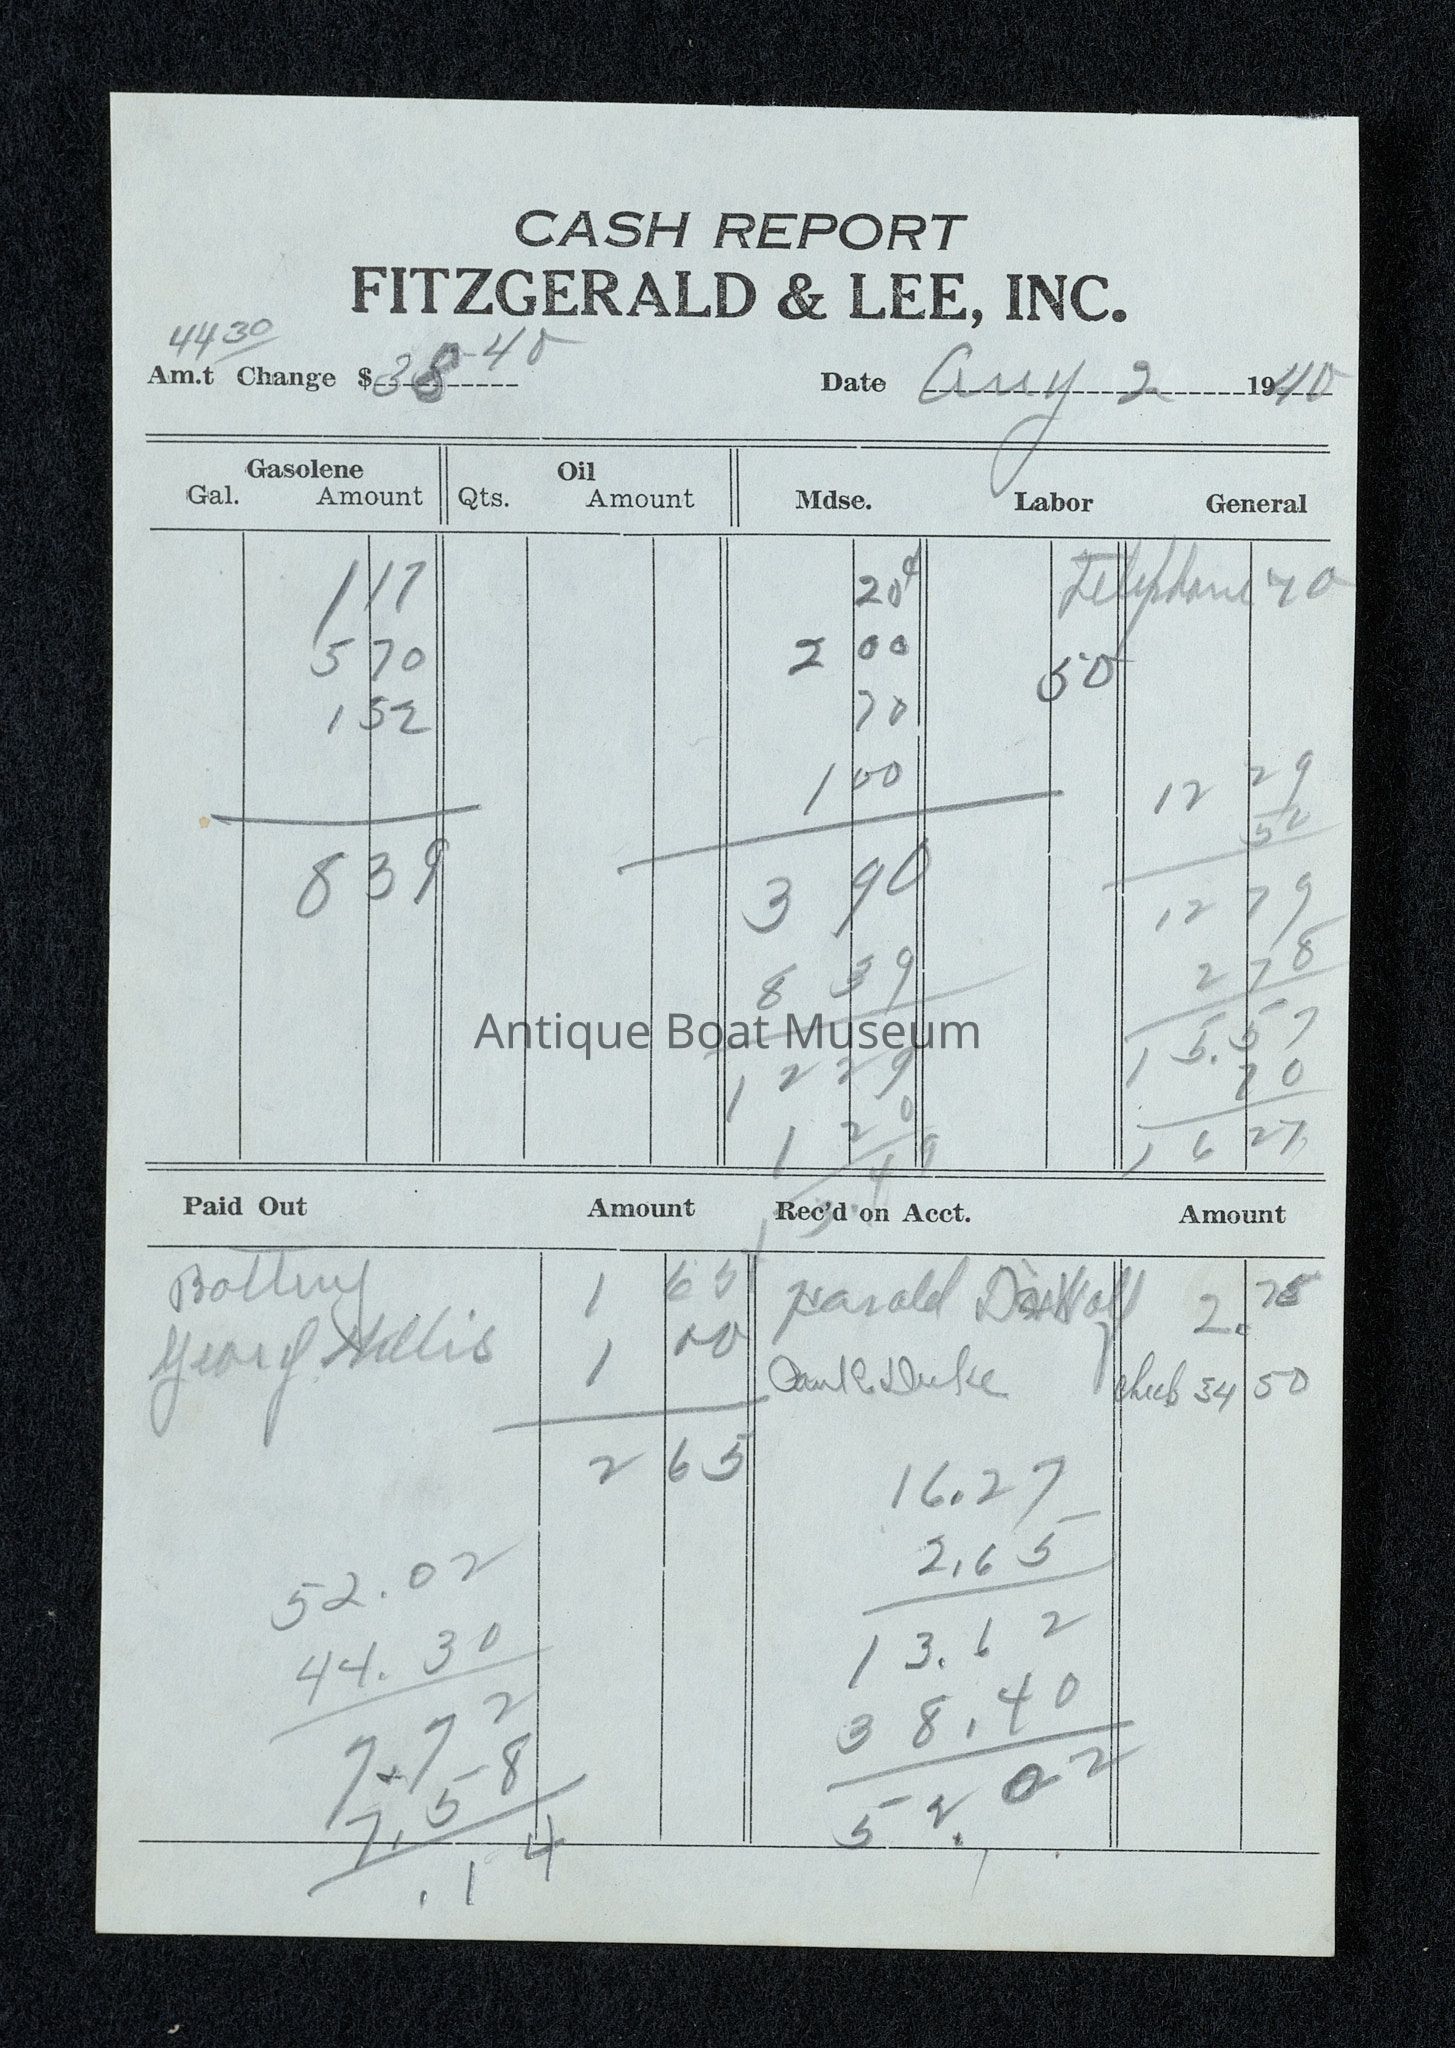 CASH REPORT
FITZGERALD & LEE, INC.
44 30
Am.t Change $ 38.40
Date Aug 2 1940
Gasolene Oil
Gal. Amount Qts. Amount Mdse. Labor General
117 20¢ Telephone 70
570 2 00 50
152 70
1 00 12 29
50
839 3 90 12 79
8 39 2 78
Antique Boat Museum
15.57
12 29 70
1 20 16 27
13 49
Paid Out Amount Rec'd on Acct. Amount
Battery 1 65 Harold 2.78
Georg 1 00 Duke check 34 50
2 65
16.27
2.65
52.02
44.30 13.62
7.72 38.40
7.58 52.02
.14